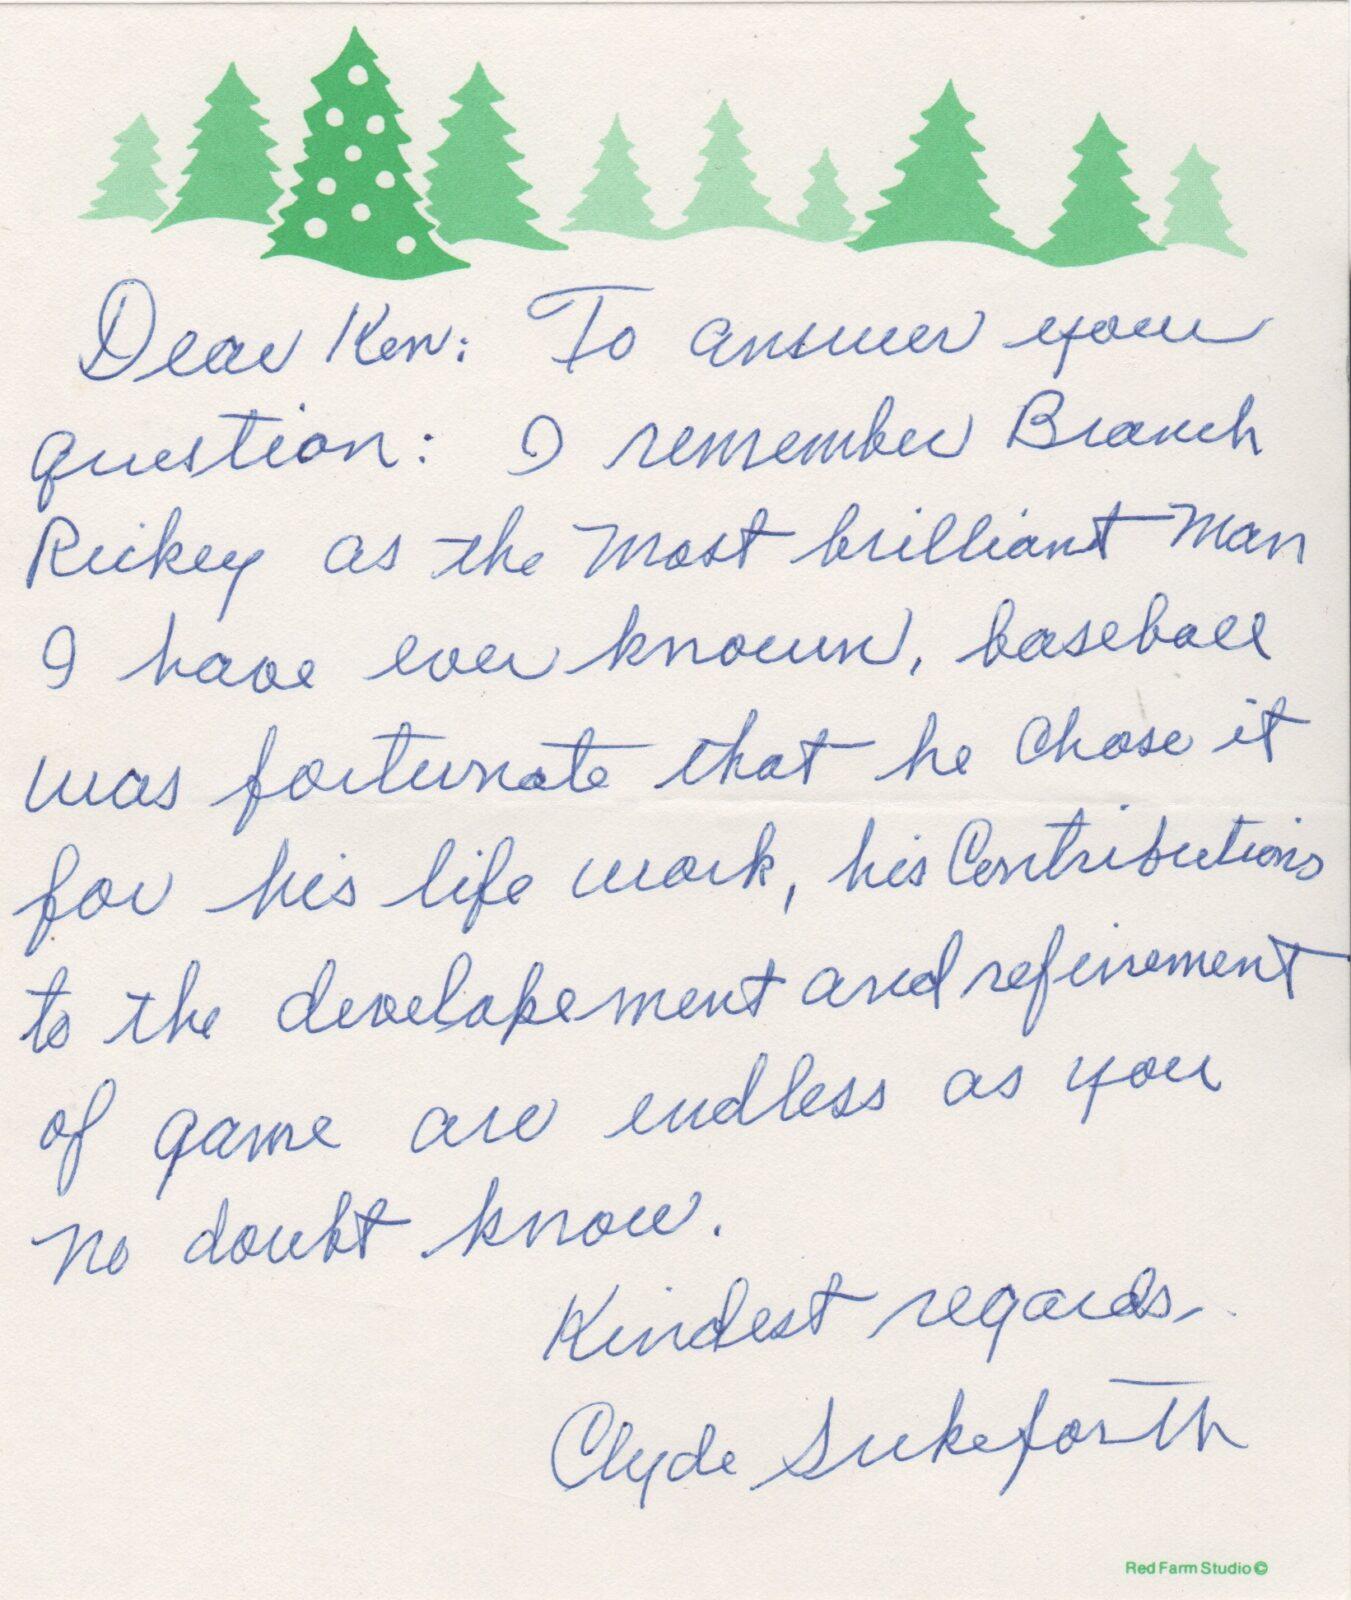 Dear Ken: To answer your
question: I remember Branch
Rickey as the most brilliant man
I have ever known, baseball
was fortunate that he chose it
for his life work, his Contributions
to the developement and refinement
of game are endless as you
no doubt know.
Kindest regards,
Clyde Sukeforth
Red Farm Studio ©